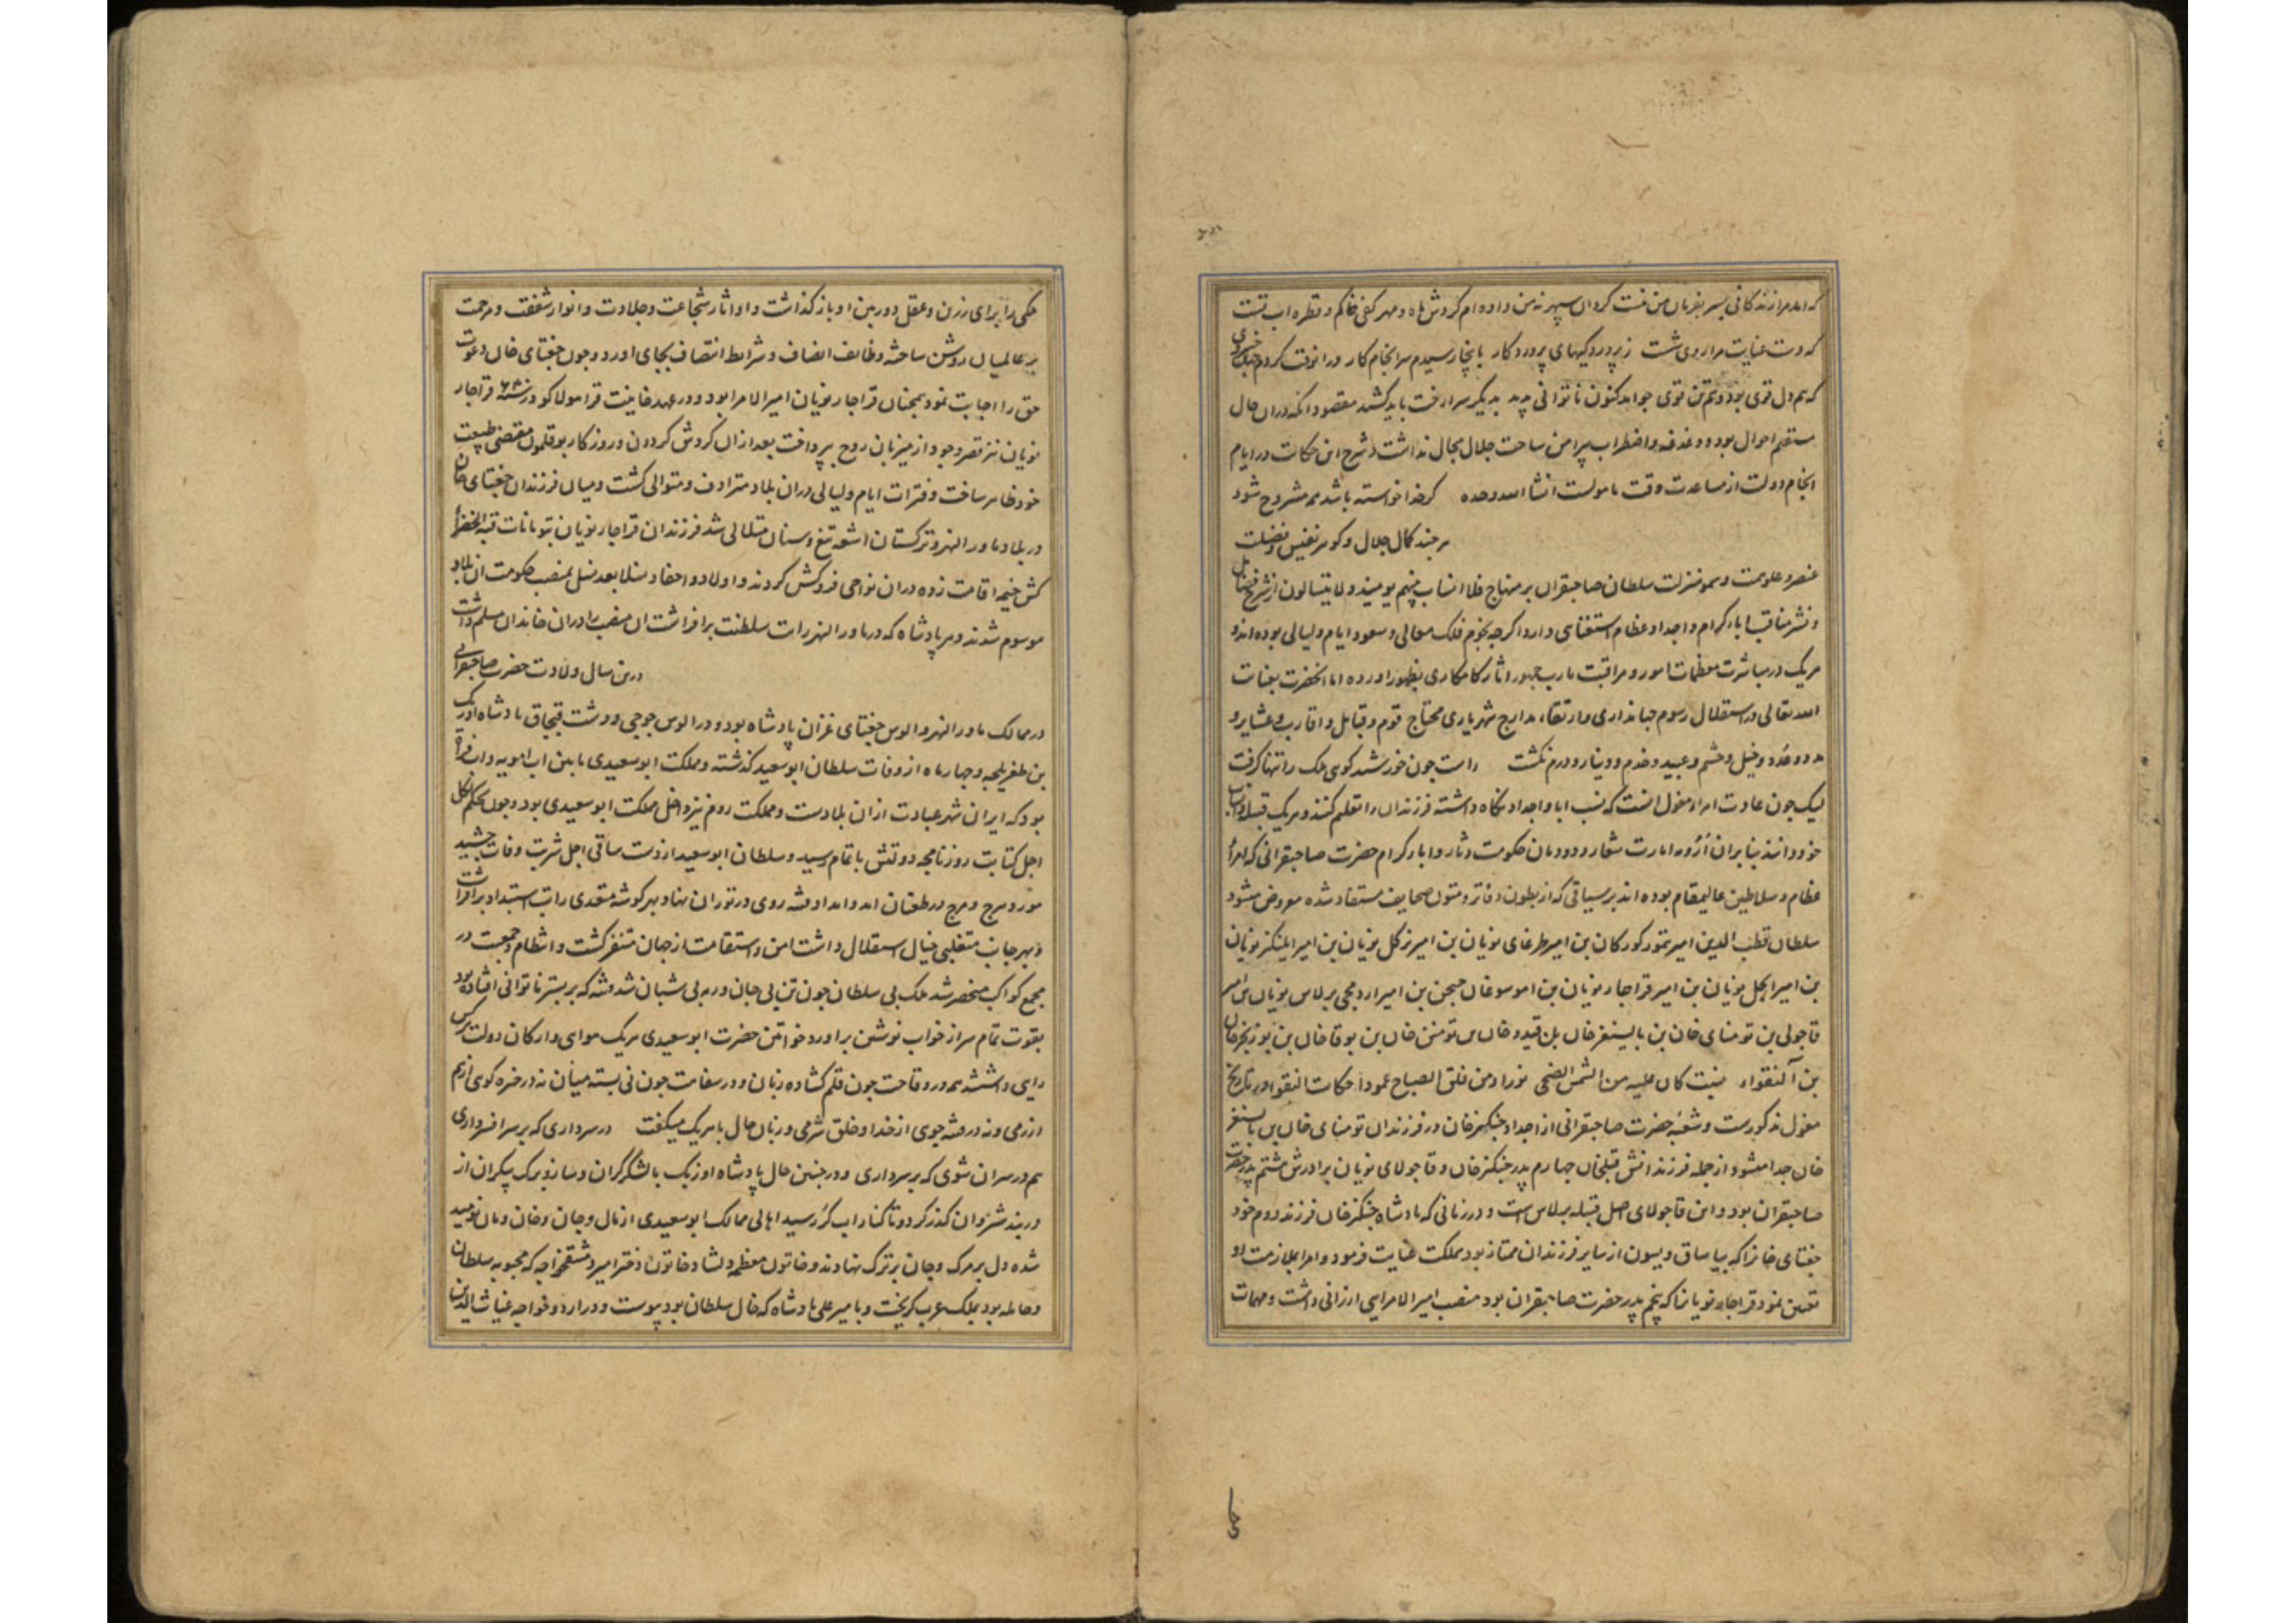 که دست عنایت مرا روی شت زپروردکیهای پروردکار بانجا رسیدم سرانجام کار
که هم دل قوی بود و هم تن قوی جو آمد کنون ناتوانی پدید بدیگر سرا رخت باید کشید مقصود انکه دران حال
مستقیم احوال بود و دغدغه و اضطراب پیرامن ساحت جلال مجال نداشت و شرح این حکات در ایام
انجام دولت از مساعدت وقت مامولست انشا الله وحده کر خدا خواسته باشد همه مشروح شود
هر جند کمال جلال و کوهر نفیس و فضیلت
عنصر و علو همت و سمو منزلت سلطان صاحبقران بر منهاج فلا انساب بینهم یومیذ ولا یتسالون از شرح فضایل
و نشر مناقب اباء کرام و اجداد عظام استغنای دارد اکرجه نجوم فلک معالی و سعود ایام و لیالی بوده اند و
هریک در مباشرت معظمات امور و مراقبت مارب جمهور اثار کامکاری بظهور اورده اما انحضرت بعنایت
الله تعالی در استقلال رسوم جهانداری و ارتقاء مدارج شهریاری محتاج قوم و قبایل و اقارب و عشایر و
عدد و عُدد و خیل و حشم و عبید و خدم و دینار و درم نکشت راست جون خورشید کوی ملک را تنها کرفت
لیک جون عادت امراء مغول انست که نسب ابا و اجداد نکاه داشته فرزندان را تعلیم کنند و هریک قبیله و انساب
خود دانند بنابران ارومه امارت شعار و دودمان حکومت دثار و اباء کرام حضرت صاحبقرانی که امرأ
عظام و سلاطین عالیمقام بوده اند بر سیاقی که از بطون دفاتر و متون صحایف مستفاد شده معروض میشود
سلطان قطب الدین امیر تمور کورکان بن امیر طرغای نویان بن امیر برکل نویان بن امیر ایلنکز نویان
بن امیر ایجل نویان بن امیر قراجار نویان بن اموسوغان جیجن بن امیر اردمجی برلاس نویان بن امیر
قاجولی بن تومنای خان بن بایسنغر خان بن قیدو خان بن تومنن خان بن بوقا خان بن بوزنجر خان
بن آلنقواء نسب کان علیه من الشمس الضحی نورا و من فلق الصباح عمودا حکات النقوا در تاریخ
مغول مذکورست و شعبه حضرت صاحبقرانی از اجداد جنکزخان در فرزندان تومنای خان بن بایسنغر
خان جدا میشود از جمله فرزندانش قبلخان جهارم پدر جنکزخان و قاجولای نویان برادرش هشتم پدر حضرت
صاحبقران بود و این قاجولای اصل قبیله برلاس است و در زمانی که پادشاه جنکزخان فرزند دوم خود
جغتای خانرا که بیاساق و بیسون از سایر فرزندان ممتاز بود مملکت عنایت فرمود و امرا بملازمت او
تعیین نمود قراجار نویانرا که پنجم پدر حضرت صاحبقران بود منصب امیر الامرایی ارزانی داشت و مهمات
حکمی را برای رزین و عقل دوربین او باز کذاشت و او اثار شجاعت و جلادت و انوار شفقت و مرحمت
بر عالمیان روشن ساخته وظایف انصاف و شرایط انتصاف بجای اورد و جون جغتای خان دعوت
حق را اجابت نمود همجنان قراجار نویان امیر الامرا بود و در عهد خانیت قرا هولاکو در سنه قراجار
نویان نیز قصر وجود از میزبان روح بپرداخت بعد ازان کردش کردون و روزکار بوقلمون مقتضی طبیعت
خود ظاهر ساخت و فترات ایام و لیالی دران بلاد مترادف و متوالی کشت و میان فرزندان جغتای خان
در بلاد ماورالنهر و ترکستان اشعه تیغ و سنان متلالی شد فرزندان قراجار نویان بتومانات قبة الخضرأ
کش خیمه اقامت زده دران نواحی فروکش کردند و اولاد و احفاد نسلا بعد نسل بمنصب حکومت ان بلاد
موسوم شدند و هر پادشاه که در ماورالنهر رایت سلطنت برافراشت ان منصب را دران خاندان مسلم داشت
درین سال ولادت حضرت صاحبقرانی
در ممالک ماورالنهر و الوس جغتای غزان پادشاه بود و در الوس جوجی و دشت قبجاق پادشاه اوزبک
بن طغریلجه و جهار ماه از وفات سلطان ابوسعید کذشته و مملکت ابوسعیدی مابین اب امویه و اب فراة
بود که ایران شهر عبارت ازان بلادست و مملکت روم نیز داخل مملکت ابوسعیدی بود و جون بحکم لکل
اجل کتاب روزنامجه دولتش باتمام رسید و سلطان ابوسعید از دست ساقی اجل شربت وفات جشید
هور و مرج و مرج در طغیان امد و امداد فتنه روی در توران نهاد و بهر کوشه متعدی رایت استبداد برافراشت
و بهر جانب متغلبی خیال استقلال داشت امن و استقامت از جهان متنفر کشت و انتظام و جمعیت در
مجمع کواکب منحصر شد ملک بی سلطان جون تن بی جان و رمه بی شبان شد فتنه که بر بستر ناتوانی افتاده بود
بقوت تمام سر از خواب نوشین براورد خواتین حضرت ابوسعیدی هریک هوایی و ارکان دولت هرکس
رایی داشتند همه در وقاحت جون قلم کشاده زبان و در سفاهت جون نی بسته میان نه در خره کوی ازیم
ازرمی و نه در فتنه جوی از خدا و خلق شرمی و زبان حال با هریک میکفت در سرداری که بر سر افسرداری
هم در سر ان شوی که بر سر داری و در جنین حال پادشاه اوزبک با لشکر کران و ساز و برک بیکران از
دربند شروان کذر کرد و تا کنار اب کُر رسید اهالی ممالک ابوسعیدی از مال و جان و خان و مان نومید
شده دل بر مرک و جان بر ترک نهادند و خاتون معظمه دلشاد خاتون دختر امیر دمشق خواجه که محبوبه سلطان
و حامله بود بملک عرب کریخت و بامیر علی پادشاه که خال سلطان بود پیوست و در اردو خواجه غیاث الدین